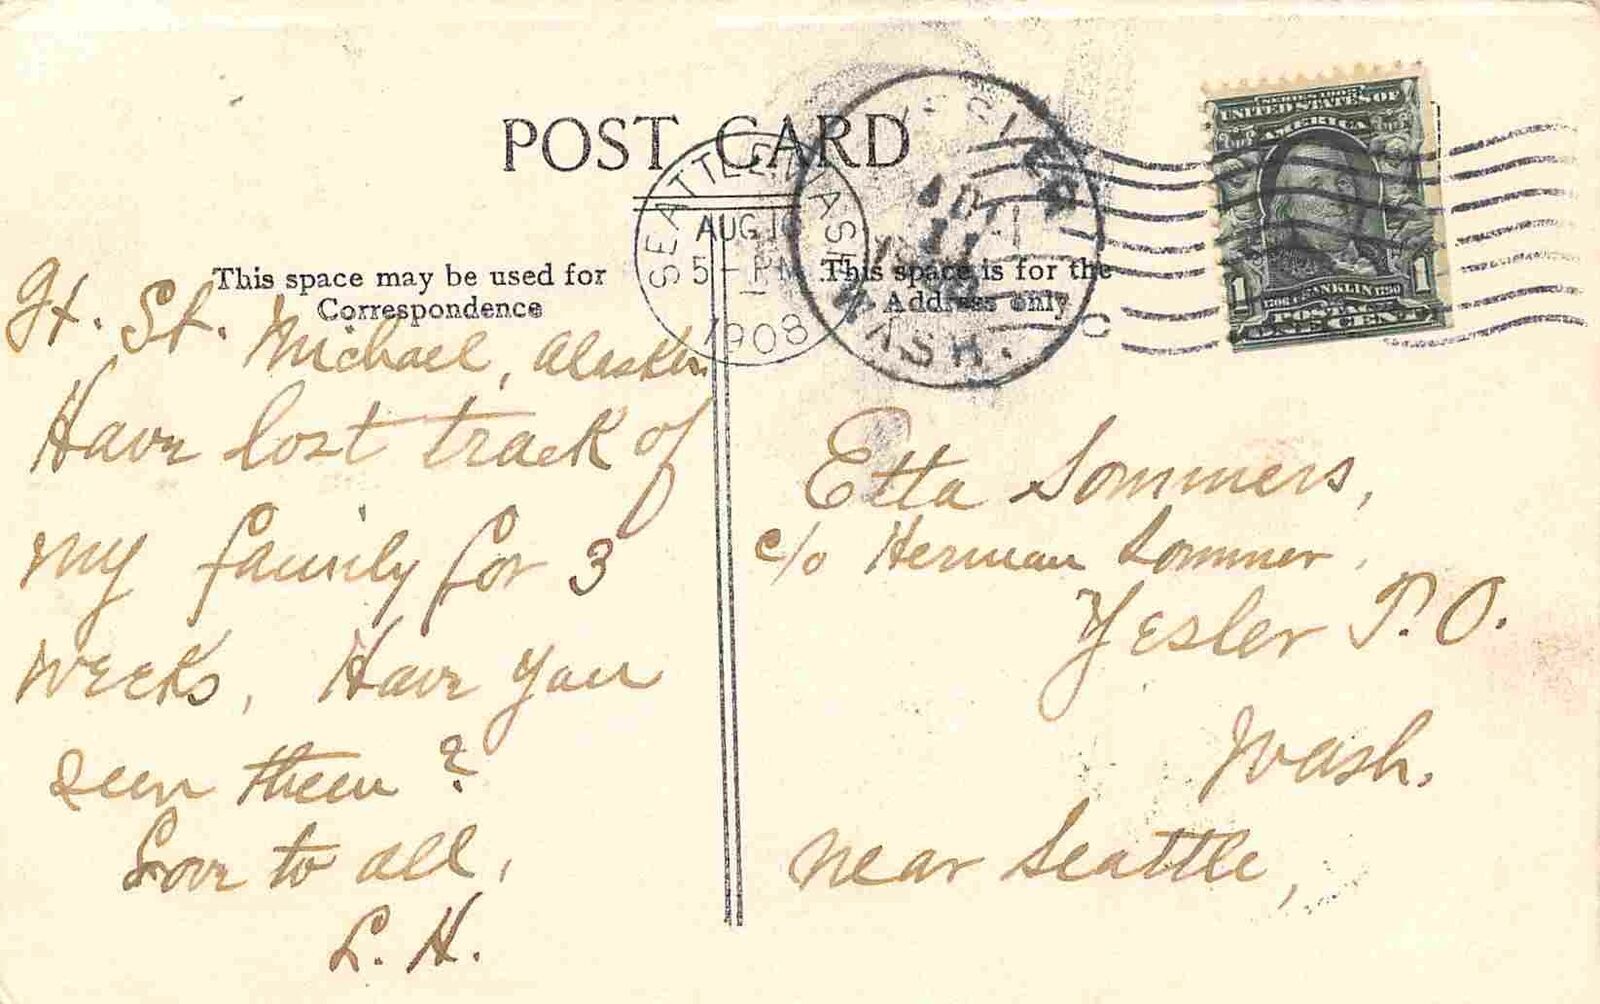 POST CARD
This space may be used for
Correspondence
This space is for the
Address only
SEATTLE, WASH.
AUG 10
5 - PM
1908
WASH.
SERIES 1902
UNITED STATES OF
AMERICA
1706 FRANKLIN 1790
POSTAGE
1 ONE CENT 1
Ft. St. Michael, Alaska.
Have lost track of
my family for 3
weeks, Have you
seen them?
Love to all,
L. H.
Etta Sommers,
c/o Herman Sommer,
Yesler P.O.
Wash.
near Seattle,